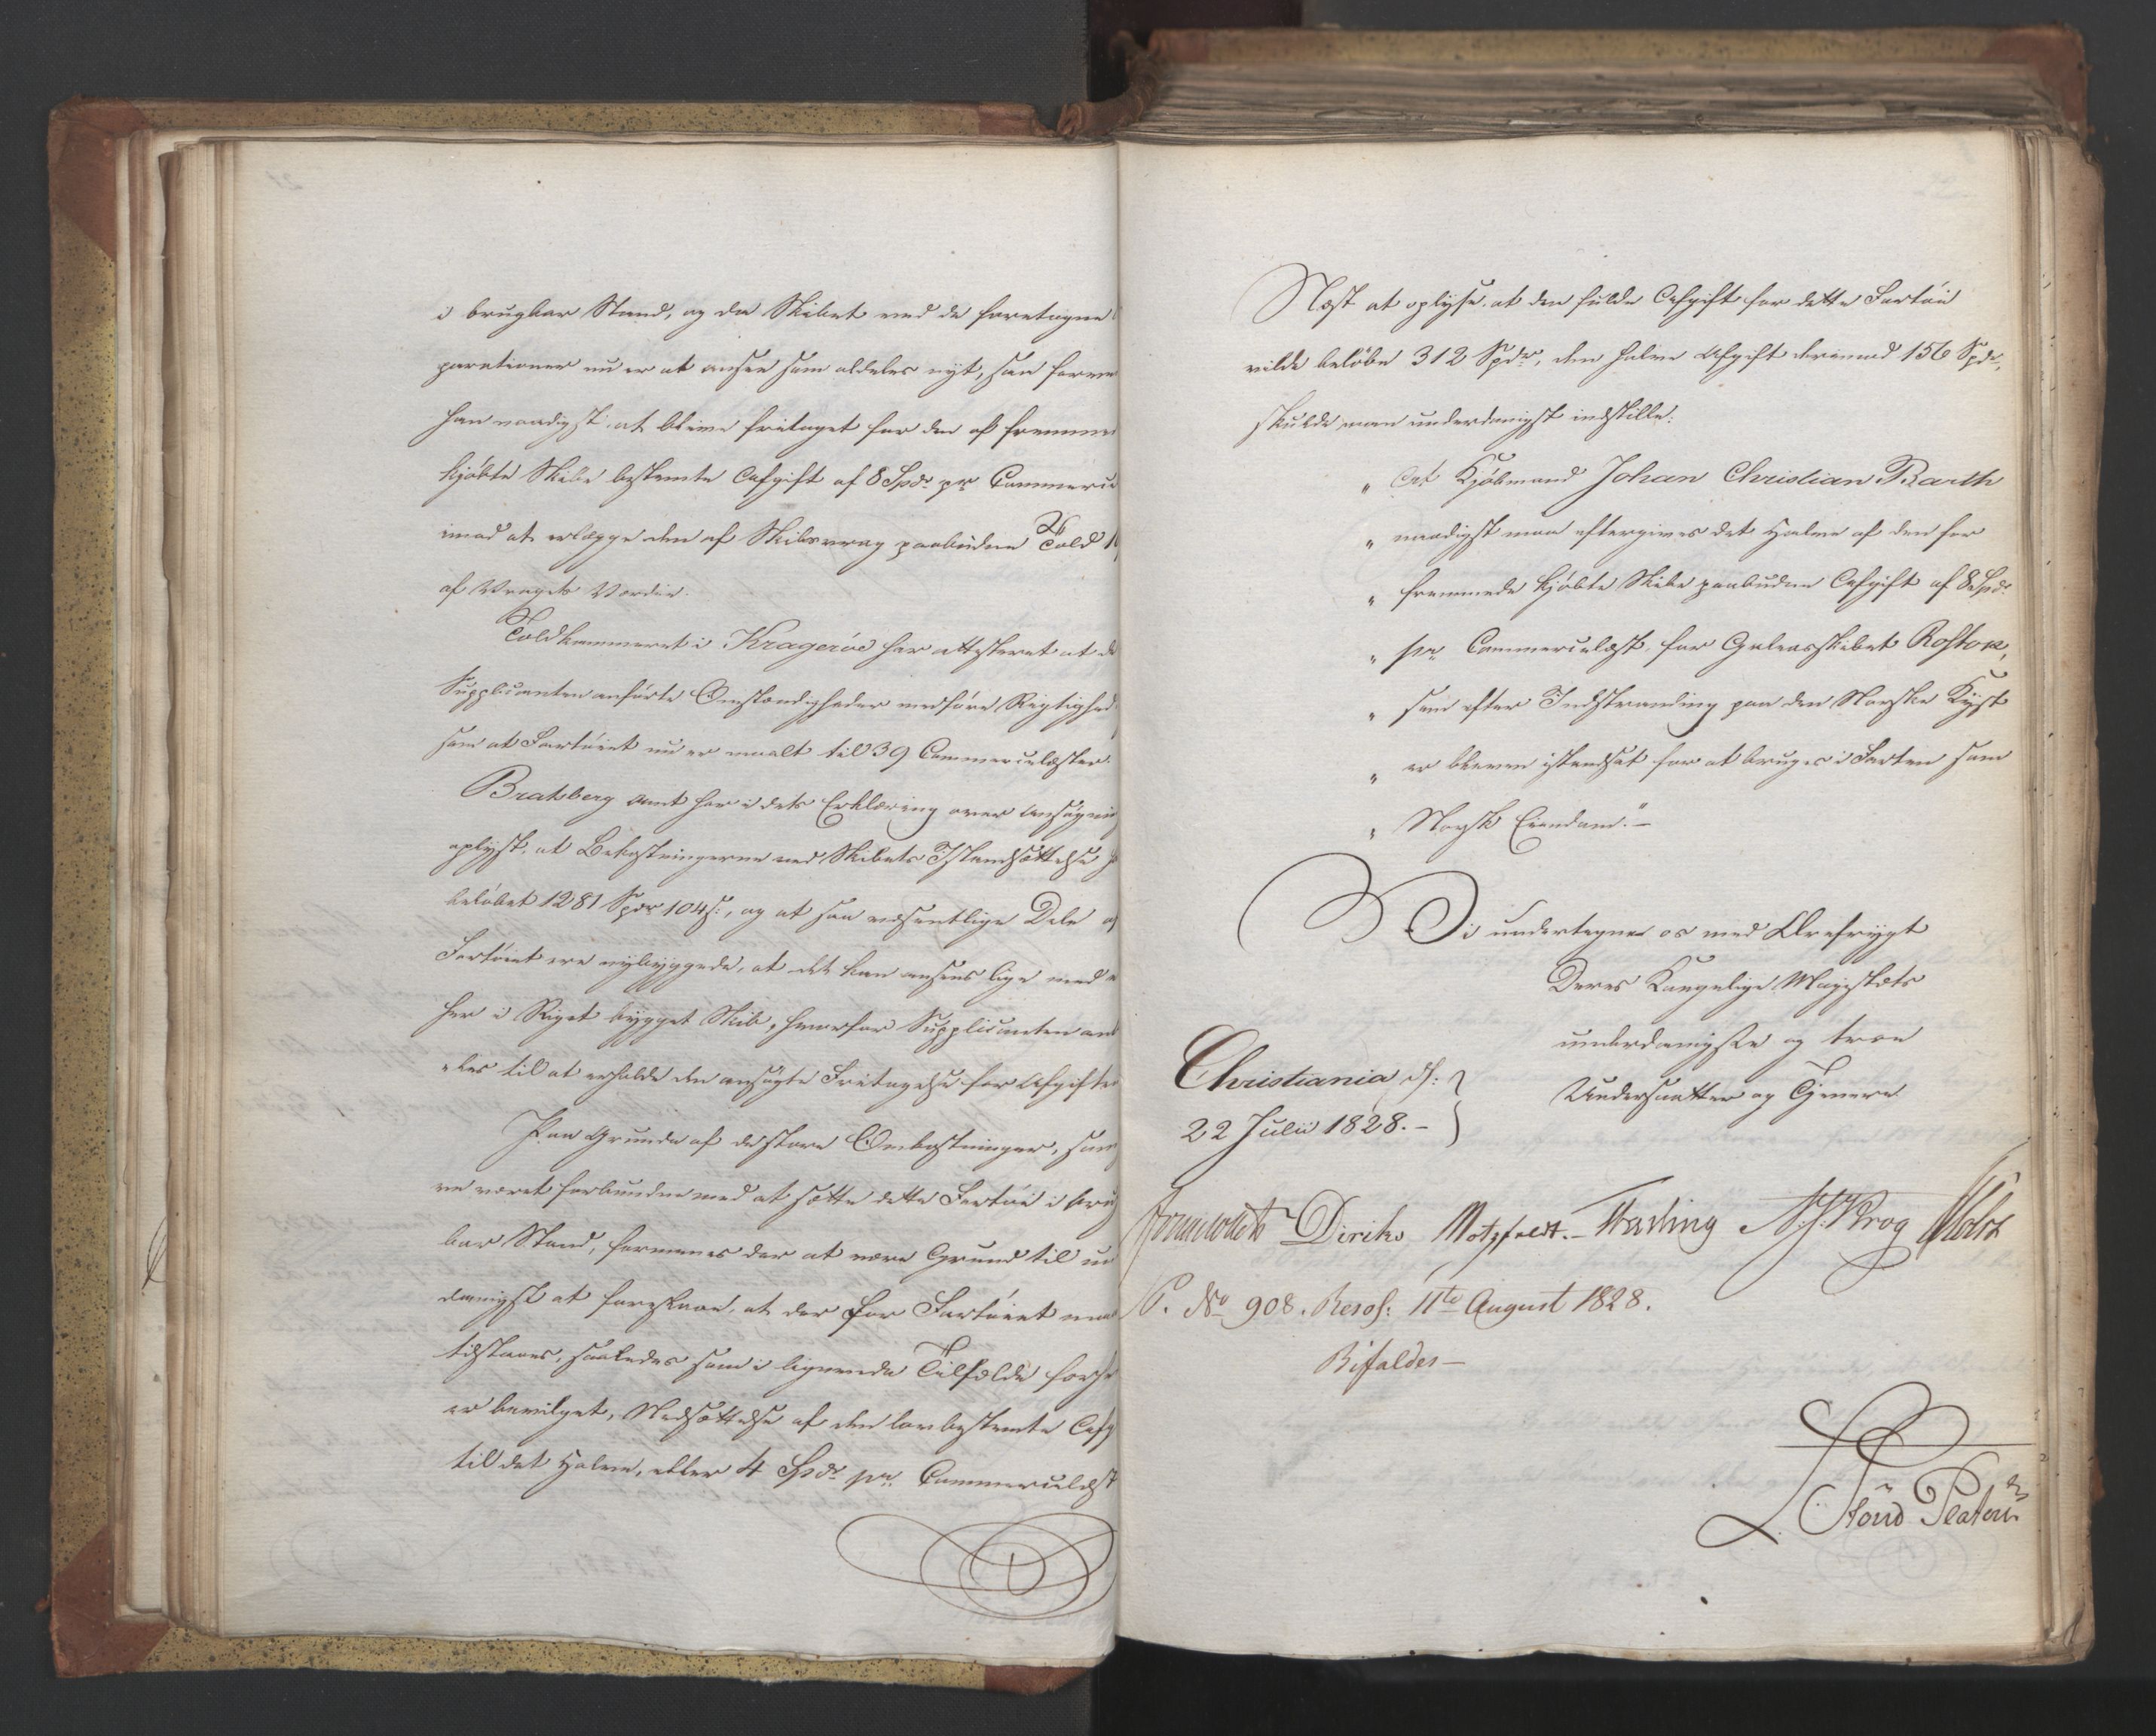 i brugbar Stand, og da Skibet med de foretagne
parationer nu er at ansee som aldeles nyt, saa forme
han naadigst at blive fritaget for den af fremmed
kjöbte Skibe bestemte Afgift af 8 Spdr. pr Commerce
imod at erlægge den af Skibsvrag paabudne Told 1
af Vragets Værdie.
Toldkammeret i Krageröe har attesteret at de
Supplicanten anförte Omstændigheder medföre Rigtighed
som at Fartöiet nu er maalt til 39 Commercelæster.
Bratsberg Amt har i dets Erklæring over Ansögnin
oplyst, at Bekostningerne ved Skibets Istandsættelse
beløbet 1281 Spdr 104 s:, og at saa væsentlige Dele af
Fartöiet ere nybyggede, at det kan ansees lige med e
her i Riget bygget Skib, hvorfor Supplicanten anb
"les til at erholde den ansögte Fritagelse for Afgifte
Paa Grund af de store Omkostninger, som
ve været forbundne med at sætte dette Fartöi i brug
bar Stand, formenes der at være Grund til un
danigst at foreslaae, at der for Fartöiet maa
tilstaaes, saaledes som i lignende Tilfælde forhe
er bevilget, Nedsættelse af den lovbestemte Afg
til det Halve, eller 4 Spdr. pr. Commercelæst
Næst at oplyse, at den fulde Afgift for dette Fartöi
vilde belöbe 312 Spdr, den halve Afgift derimod 156 Spdr,
skulde man underdanigst indstille:
" At Kjöbmand Johan Christian Barth
" naadigst maa eftergives det Halve af den for
" fremmede kjöbte Skibe paabudne Afgift af 8 Spdr.
" pr Commercelæst, for Galeasskibet Rostok,
" som efter Indstranding paa den Norske Kyst
" er bleven istandsat for at bruges i Farten som
" Norsk Eiendom." –
Vi undertegne os med Ærefrygt
Deres Kongelige Majestæts
underdanigste og troe
Undersaatter og Tjenere
Christiania d:
22 Julii 1828. –
Diriks Motzfeldt. – Fasting N. J. Krog Holst
P. No 908. Resol: 11te August 1828.
Bifaldes –